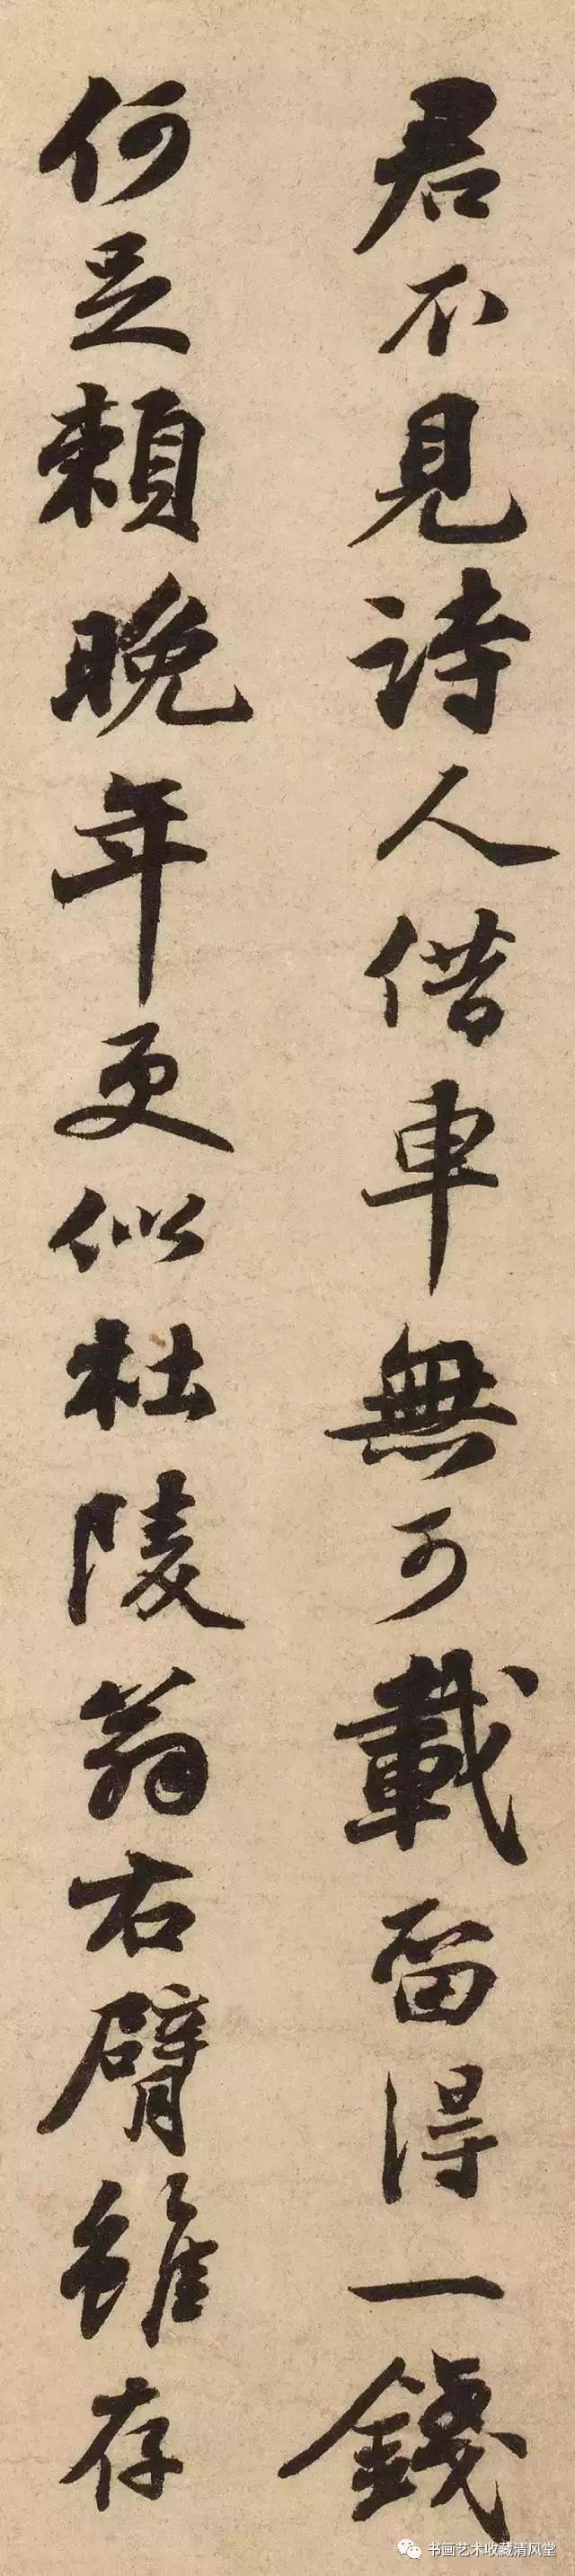 君不見詩人借車無可載留得一錢
何足賴晚年更似杜陵翁右臂雖存
书画艺术收藏清风堂